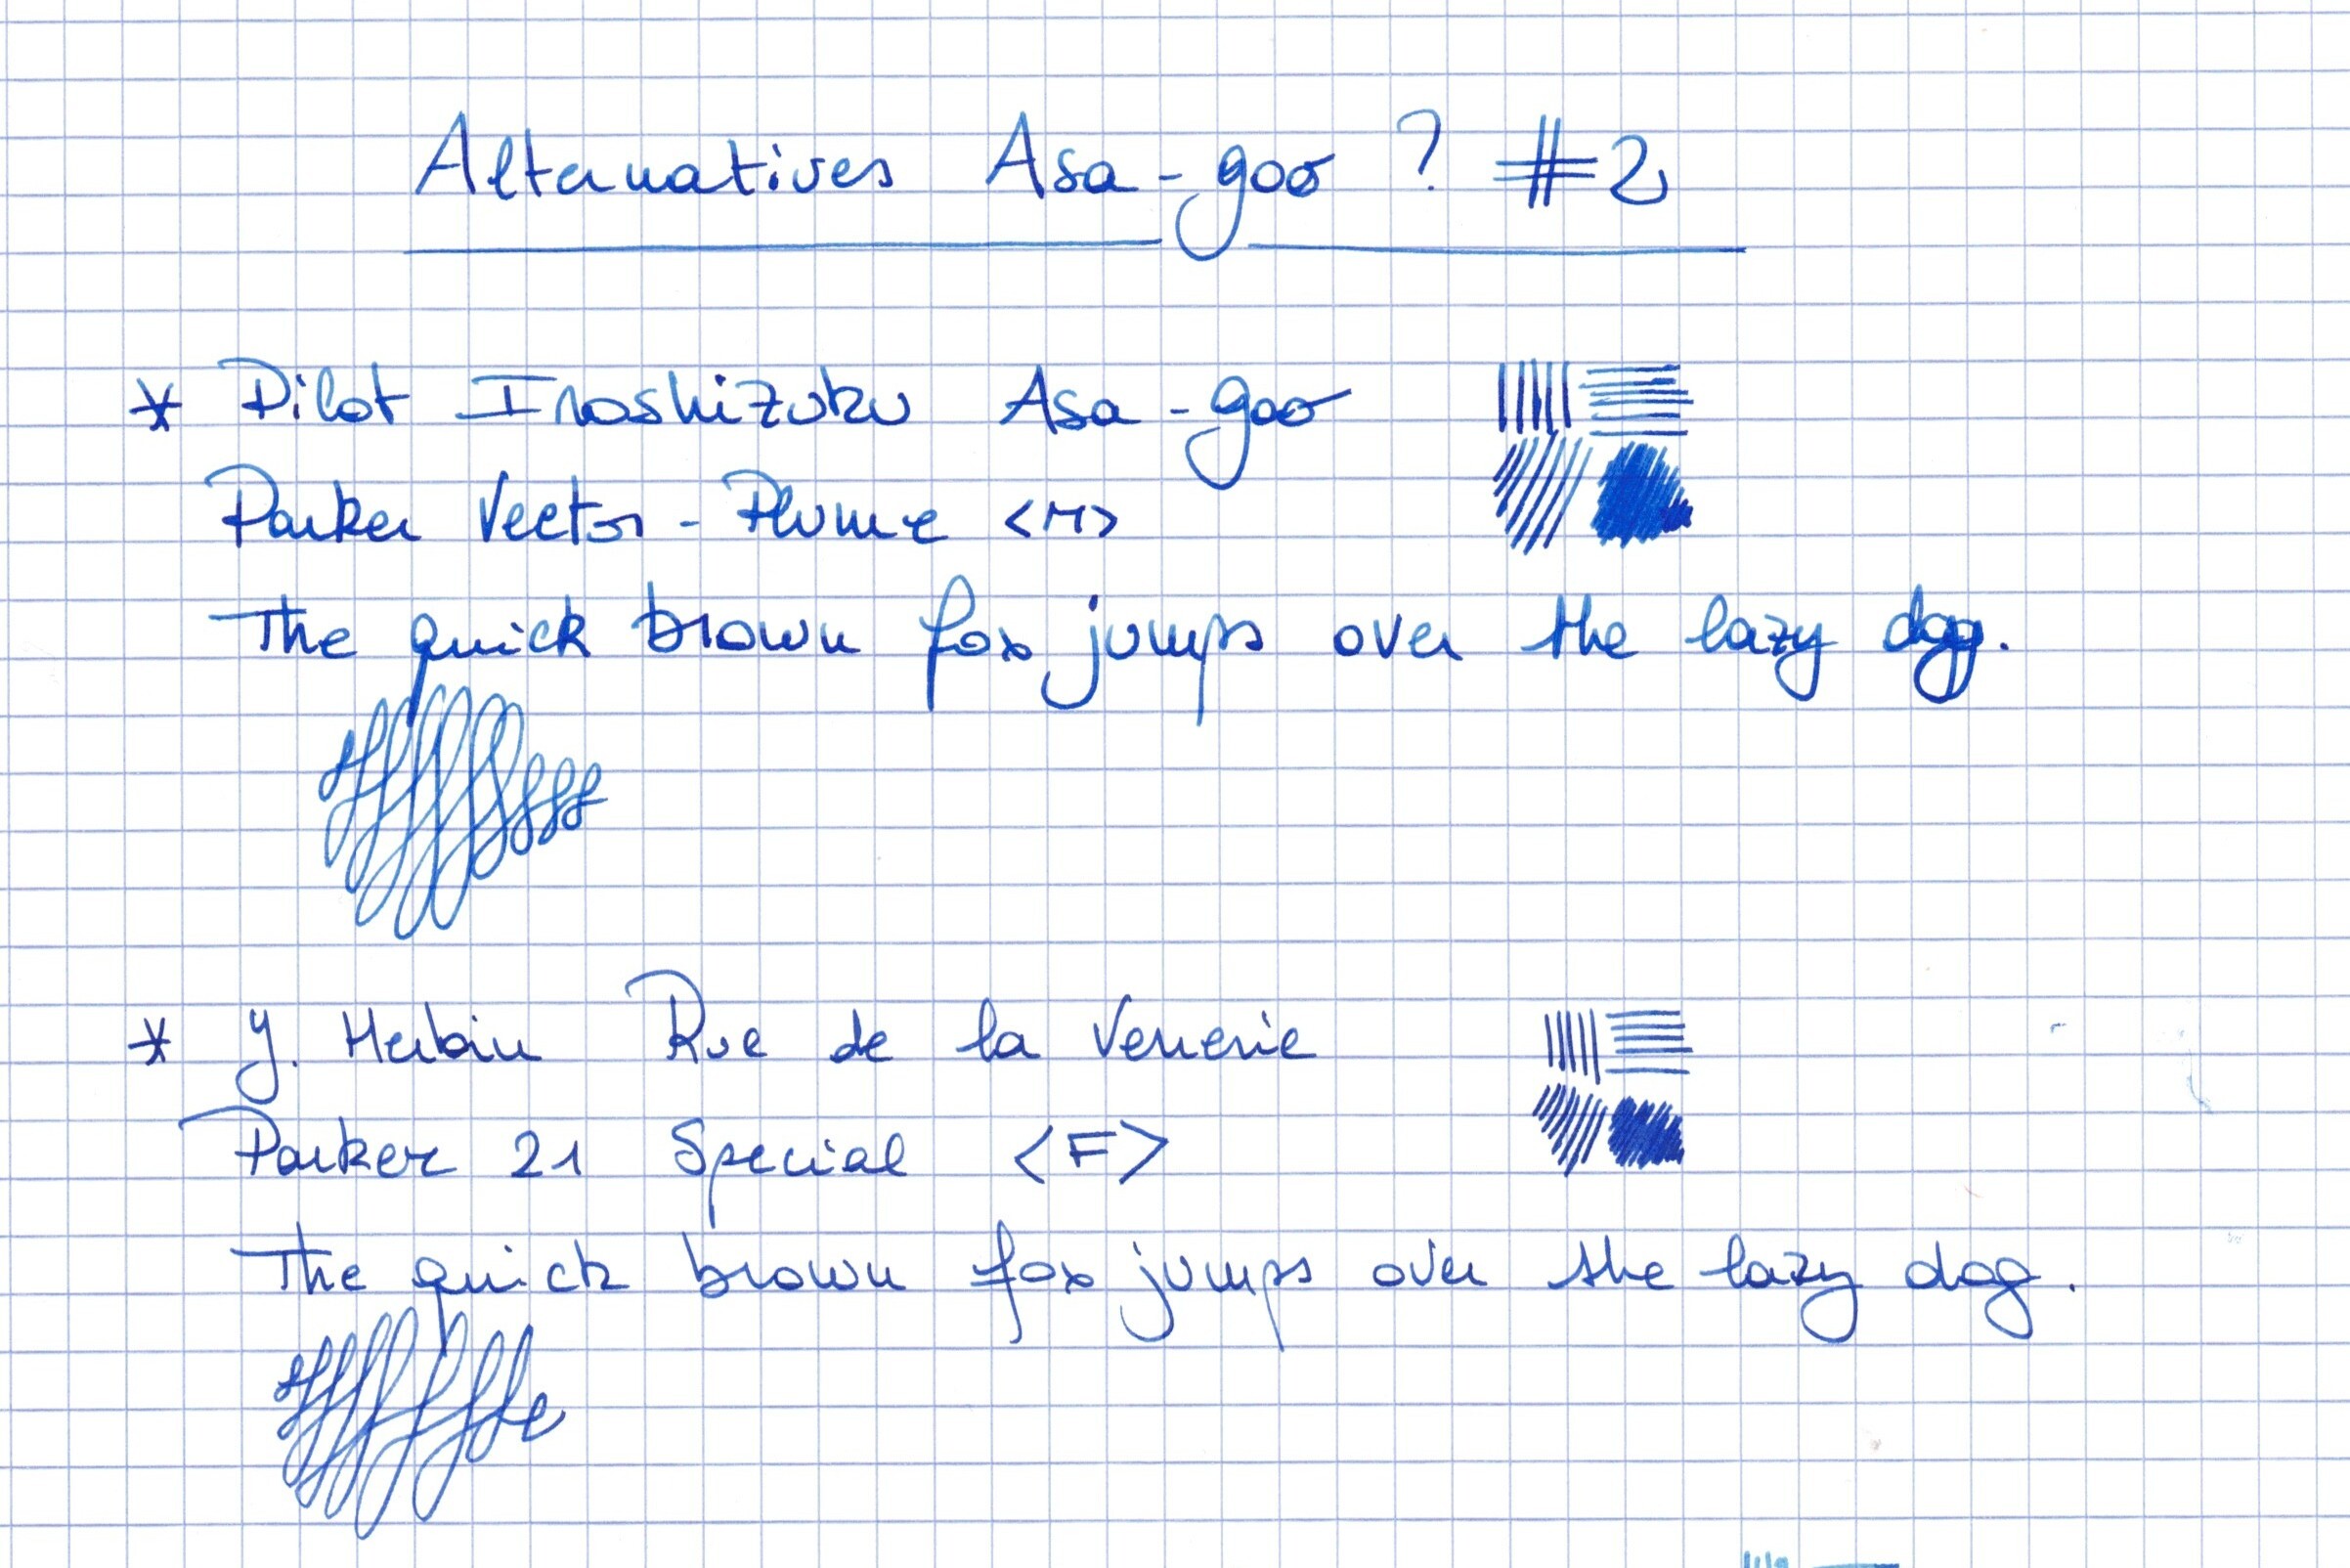 Alternatives Asa-gao ? #2
* Pilot Iroshizuku Asa-gao
Parker Vector - Plume <M>
The quick brown fox jumps over the lazy dog.
* J. Herbin Rue de la Verrerie
Parker 21 Special <F>
The quick brown fox jumps over the lazy dog.